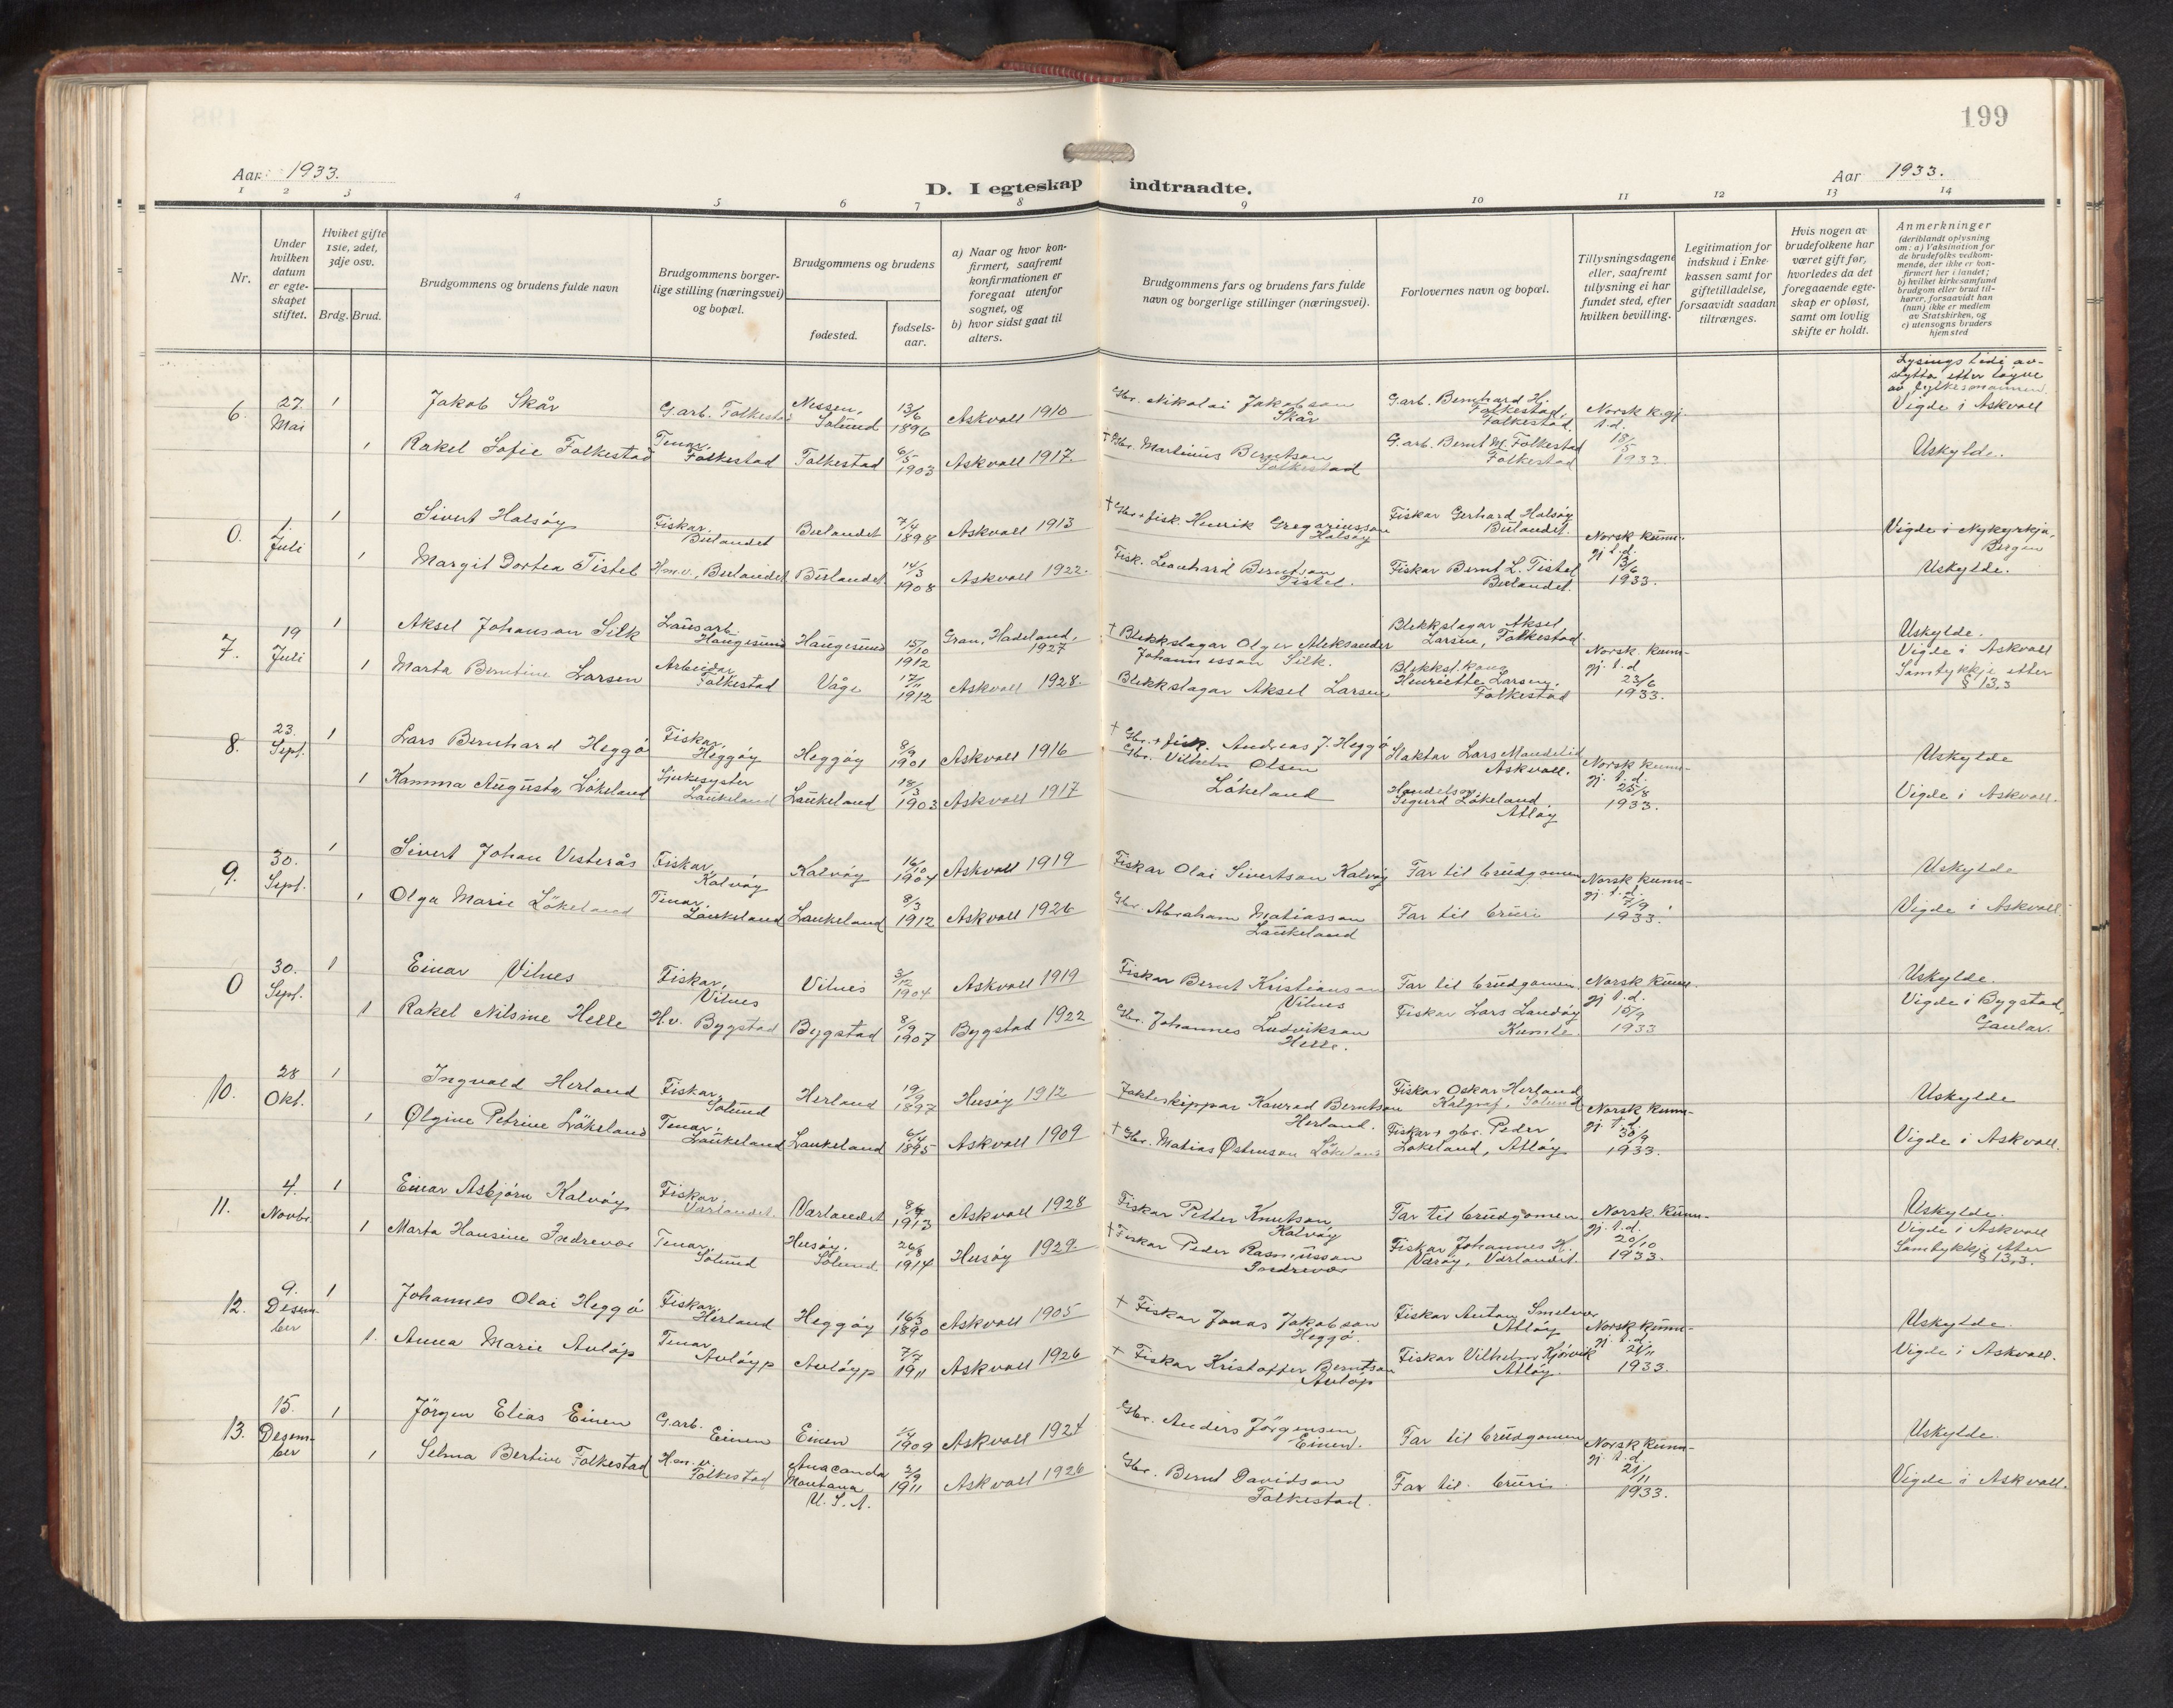 199
Aar 1933.
D. I egteskap indtraadte.
Aar 1933.
1 2 3 4 5 6 7 8 9 10 11 12 13 14
Nr.
Under hvilken datum er egte-skapet stiftet.
Hviket gifte 1ste, 2det, 3dje osv.
Brdg. Brud.
Brudgommens og brudens fulde navn
Brudgommens borger-lige stilling (næringsvei) og bopæl.
Brudgommens og brudens
fødested.
fødsels-aar.
a) Naar og hvor kon-firmert, saafremt konfirmationen er foregaat utenfor sognet, og
b) hvor sidst gaat til alters.
Brudgommens fars og brudens fars fulde navn og borgerlige stillinger (næringsvei).
Forlovernes navn og bopæl.
Tillysningsdagene eller, saafremt tillysning ei har fundet sted, efter hvilken bevilling.
Legitimation for indskud i Enke-kassen samt for giftetilladelse, forsaavidt saadan tiltrænges.
Hvis nogen av brudefolkene har været gift før, hvorledes da det foregaaende egte-skap er opløst, samt om lovlig skifte er holdt.
Anmerkninger (deriblandt oplysning om: a) Vaksination for de brudefolks vedkom-mende, der ikke er kon-firmert her i landet; b) hvilket kirkesamfund brudgom eller brud til-hører, forsaavidt han (hun) ikke er medlem av Statskirken, og c) utensogns bruders hjemsted
6. 27. Mai 1 Jakob Skår G.arb. Folkestad Nessen, Solund 13/6 1896 Askvoll 1910 Gbr. Nikolai Jakobson Skår G.arb. Bernhard Hj. Folkestad, Folkestad. Norsk k.gj. t.d. 18/5 1933. Lysings tidi av-stytta etter løyve av fylkesmannen. Vigde i Askvoll
1 Rakel Sofie Folkestad Tenar, Folkestad Folkestad 6/5 1903 Askvoll 1917. † Gbr. Martinus Berntson Folkestad G.arb. Bernt M. Folkestad Folkestad Uskylde.
0. 1. Juli 1 Sivert Halsøy Fiskar, Bulandet Bulandet 7/4 1898 Askvoll 1913 † Gbr. + fisk. Henrik Gregariusson Halsøy Fiskar Gerhard Halsøy Bulandet. Norsk kunn-gj. t.d. 13/6 1933. Vigde i Nykyrkja, Bergen
1 Margit Dortea Tistel Hm.v., Bulandet Bulandet 14/3 1908 Askvoll 1922. Fisk. Leonhard Berntson Tistel. Fiskar Bernt L. Tistel Bulandet. Uskylde.
7. 19 Juli 1 Aksel Johanson Silk Lausarb. Haugesund Haugesund 15/10 1912 Gran, Hadeland, 1927 † Blekkslagar Olger Aleksander Johannesson Silk. Blekkslagar Aksel Larsen, Folkestad. Norsk kunn-gj. t.d. 23/6 1933. Uskylde. Vigde i Askvoll
1 Marta Berntine Larsen Arbeidar, Folkestad Våge 17/11 1912 Askvoll 1928. Blekkslagar Aksel Larsen Blekksl.kona Henriette Larsen, Folkestad Samtykkje etter § 13,3
8. 23. Sept. 1 Lars Bernhard Heggø Fiskar, Heggøy Heggøy 8/9 1901 Askvoll 1916 † Gbr. + fisk. Andreas J. Heggø Haktar Lars Mandelid Askvoll. Norsk kunn-gj. t.d. 25/8 1933. Uskylde
1 Kamma Augusta Løkeland Sjukesyster Laukeland Laukeland 18/3 1903 Askvoll 1917 Gbr. Vilhelm Olsen Løkeland Handelsm. Sigurd Løkeland. Atløy Vigde i Askvoll.
9. 30. Sept. 1 Sivert Johan Vesterås Fiskar, Kalvøy Kalvøy 16/10 1904 Askvoll 1919 Fiskar Olai Sivertson Kalvøy Far til brudgomen Norsk kunn-gj. t.d. 7/9 1933. Uskylde
1 Olga Marie Løkeland Tenar, Laukeland Laukeland 8/3 1912 Askvoll 1926 Gbr. Abraham Matiasson Laukeland Far til bruri Vigde i Askvoll.
0 30. Sept. 1 Einar Vilnes Fiskar, Vilnes Vilnes 3/12 1904 Askvoll 1919 Fiskar Bernt Kristianson Vilnes Far til brudgomen Norsk kunn-gj. t.d. 15/9 1933 Uskylde.
1 Rakel Nilsine Helle H.v. Bygstad Bygstad 8/9 1907 Bygstad 1922 Gbr. Johannes Ludvikson Helle. Fiskar Lars Landøy Kumle Vigde i Bygstad, Gaular.
10. 28 Okt. 1 Ingvald Herland Fiskar, Solund Herland 19/9 1897 Husøy 1912 Jakteskippar Konrad Berntson Herland. Fiskar Oskar Herland Kalgraf, Solund Norsk kunn-gj. t.d. 30/9 1933. Uskylde
1 Ølgine Petrine Løkeland Tenar, Laukeland Laukeland 6/4 1895 Askvoll 1909 † Gbr. Matias Østenson Løkeland Fiskar + gbr. Peder Løkeland, Atløy Vigde i Askvoll.
11. 4. Novbr. 1 Einar Asbjørn Kalvøy Fiskar, Værlandet. Værlandet 1913 Askvoll 1928 Fiskar Petter Knutson, Kalvøy Far til brudgomen Norsk. kunn-gj. t.d. 20/10 1933. Uskylde.
1 Marta Hansine Indrevær Tenar, Solund Husøy, Solund. 26/8 1914 Husøy 1929. † Fiskar Peder Rasmusson Indrevær Fiskar Johannes H. Værøy, Værlandet. Vigde i Askvoll Samtykkje etter § 13,3.
12. 9. Desem-ber 1 Johannes Olai Heggø Fiskar, Herland Heggøy 16/3 1890 Askvoll 1905 † Fiskar Jonas Jakobson Heggø. Fiskar Anton Smelvær Atløy Norsk kunn-gj. t.d. 21/11 1933. Uskylde.
1. Anna Marie Auløp Tenar, Auløyp Auløyp 7/7 1911 Askvoll 1926 † Fiskar Kristoffer Berntson Auløp Fiskar Vilhelm Kjørvik Atløy. Vigde i Askvoll.
13. 15. Desem-ber 1 Jørgen Elias Einen G.arb. Einen Einen 1909 Askvoll 1924 Gbr. Anders Jørgensen Einen. Far til brudgomen Norsk kunn-gj. t.d. 21/11 1933. Uskylde.
1 Selma Bertine Folkestad Hm.v. Folkestad Anaconda Montana U.S.A. 2/9 1911 Askvoll 1926 Gbr. Bernt Davidson Folkestad. Far til bruri Vigde i Askvoll.